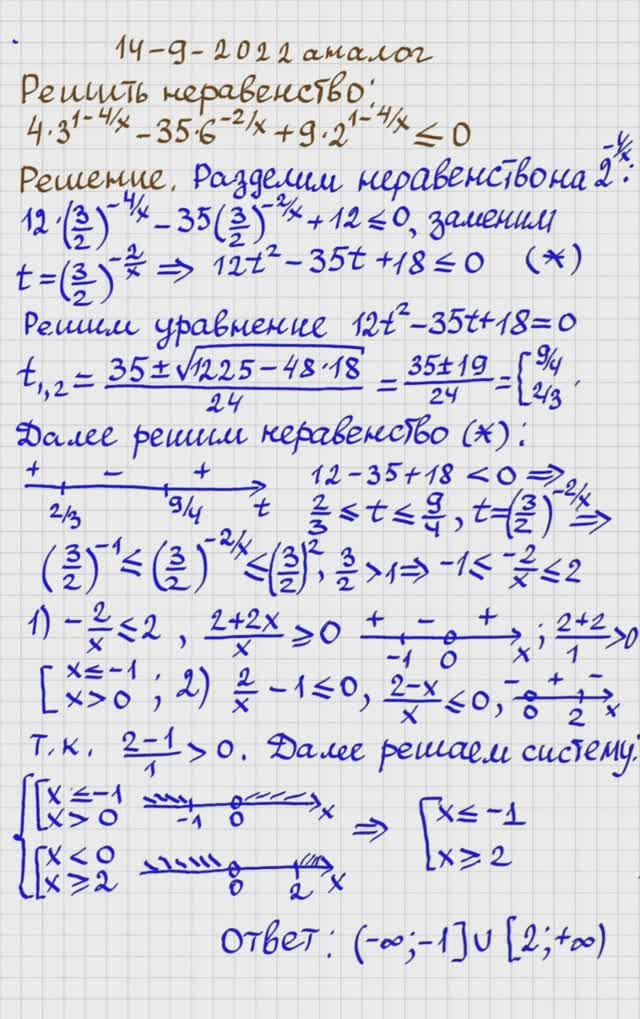 14-9-2022 аналог
Решить неравенство:
4·3^{1-4/x} - 35·6^{-2/x} + 9·2^{1-4/x} ≤ 0
Решение. Разделим неравенство на 2^{-4/x}:
12·(3/2)^{-4/x} - 35(3/2)^{-2/x} + 12 ≤ 0, заменим
t = (3/2)^{-2/x} ⇒ 12t² - 35t + 18 ≤ 0 (*)
Решим уравнение 12t² - 35t + 18 = 0
t_{1,2} = (35 ± √(1225 - 48·18))/24 = (35 ± 19)/24 = [9/4 2/3.
Далее решим неравенство (*):
+ - + 2/3 9/4 t 12 - 35 + 18 < 0 ⇒
2/3 ≤ t ≤ 9/4, t = (3/2)^{-2/x} ⇒
(3/2)^{-1} ≤ (3/2)^{-2/x} ≤ (3/2)^2, 3/2 > 1 ⇒ -1 ≤ -2/x ≤ 2
1) -2/x ≤ 2, (2+2x)/x ≥ 0 + - + -1 0 x; (2+2)/1 > 0
[x ≤ -1 x > 0; 2) 2/x - 1 ≤ 0, (2-x)/x ≤ 0, - + - 0 2 x
т.к. (2-1)/1 > 0. Далее решаем систему:
{[x ≤ -1 x > 0 -1 0 x
[x < 0 x ≥ 2 0 2 x
⇒ [x ≤ -1 x ≥ 2
Ответ: (-∞; -1] ∪ [2; +∞)